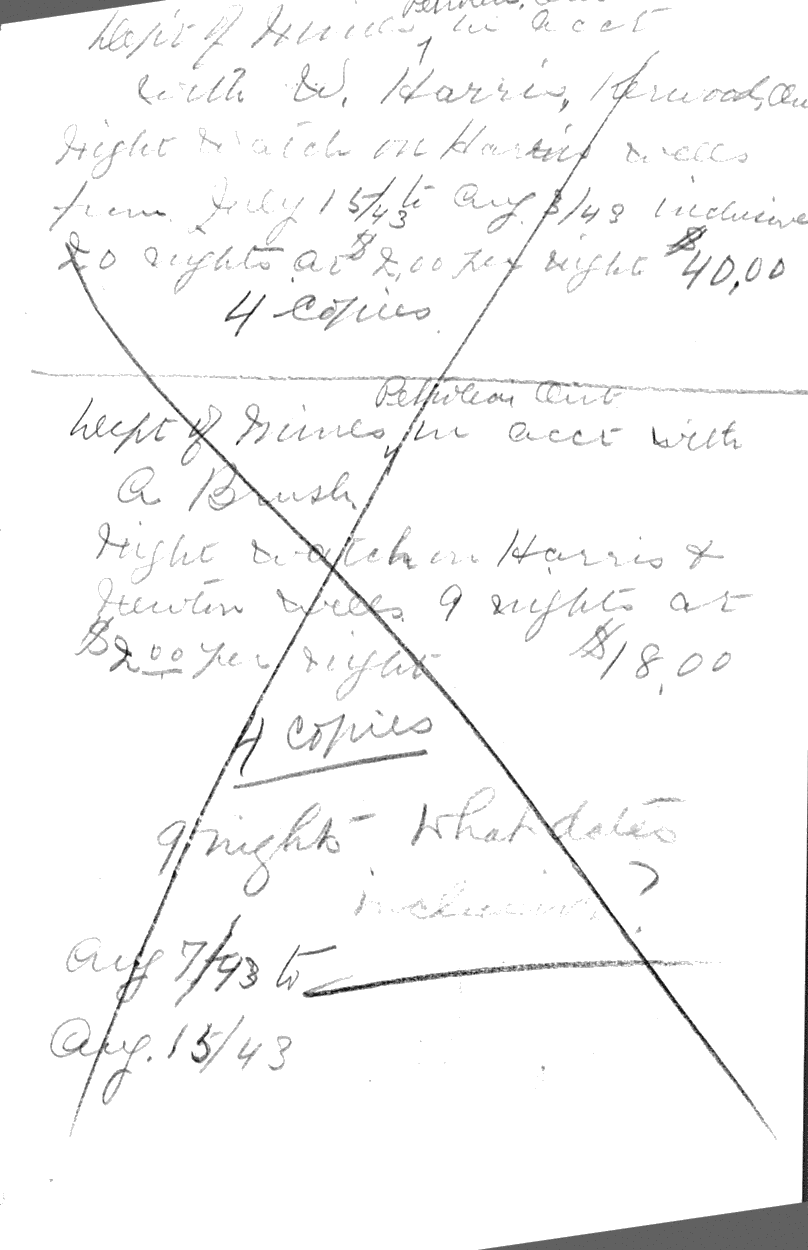 Petrolea, Ont
Dept of Mines, in acct
with W. Harris, Kerwood, On
Night Watch on Harris wells
from July 15/43 to Aug. 3/43 inclusive
20 nights at $2.00 per night $40.00
4 copies
Petrolea Ont
Dept of Mines, in acct with
A Brush
Night watch on Harris &
Newton wells 9 nights at
$2.00 per night $18.00
4 copies
9 nights - What dates
inclusive?
Aug 7/43 to
Aug. 15/43